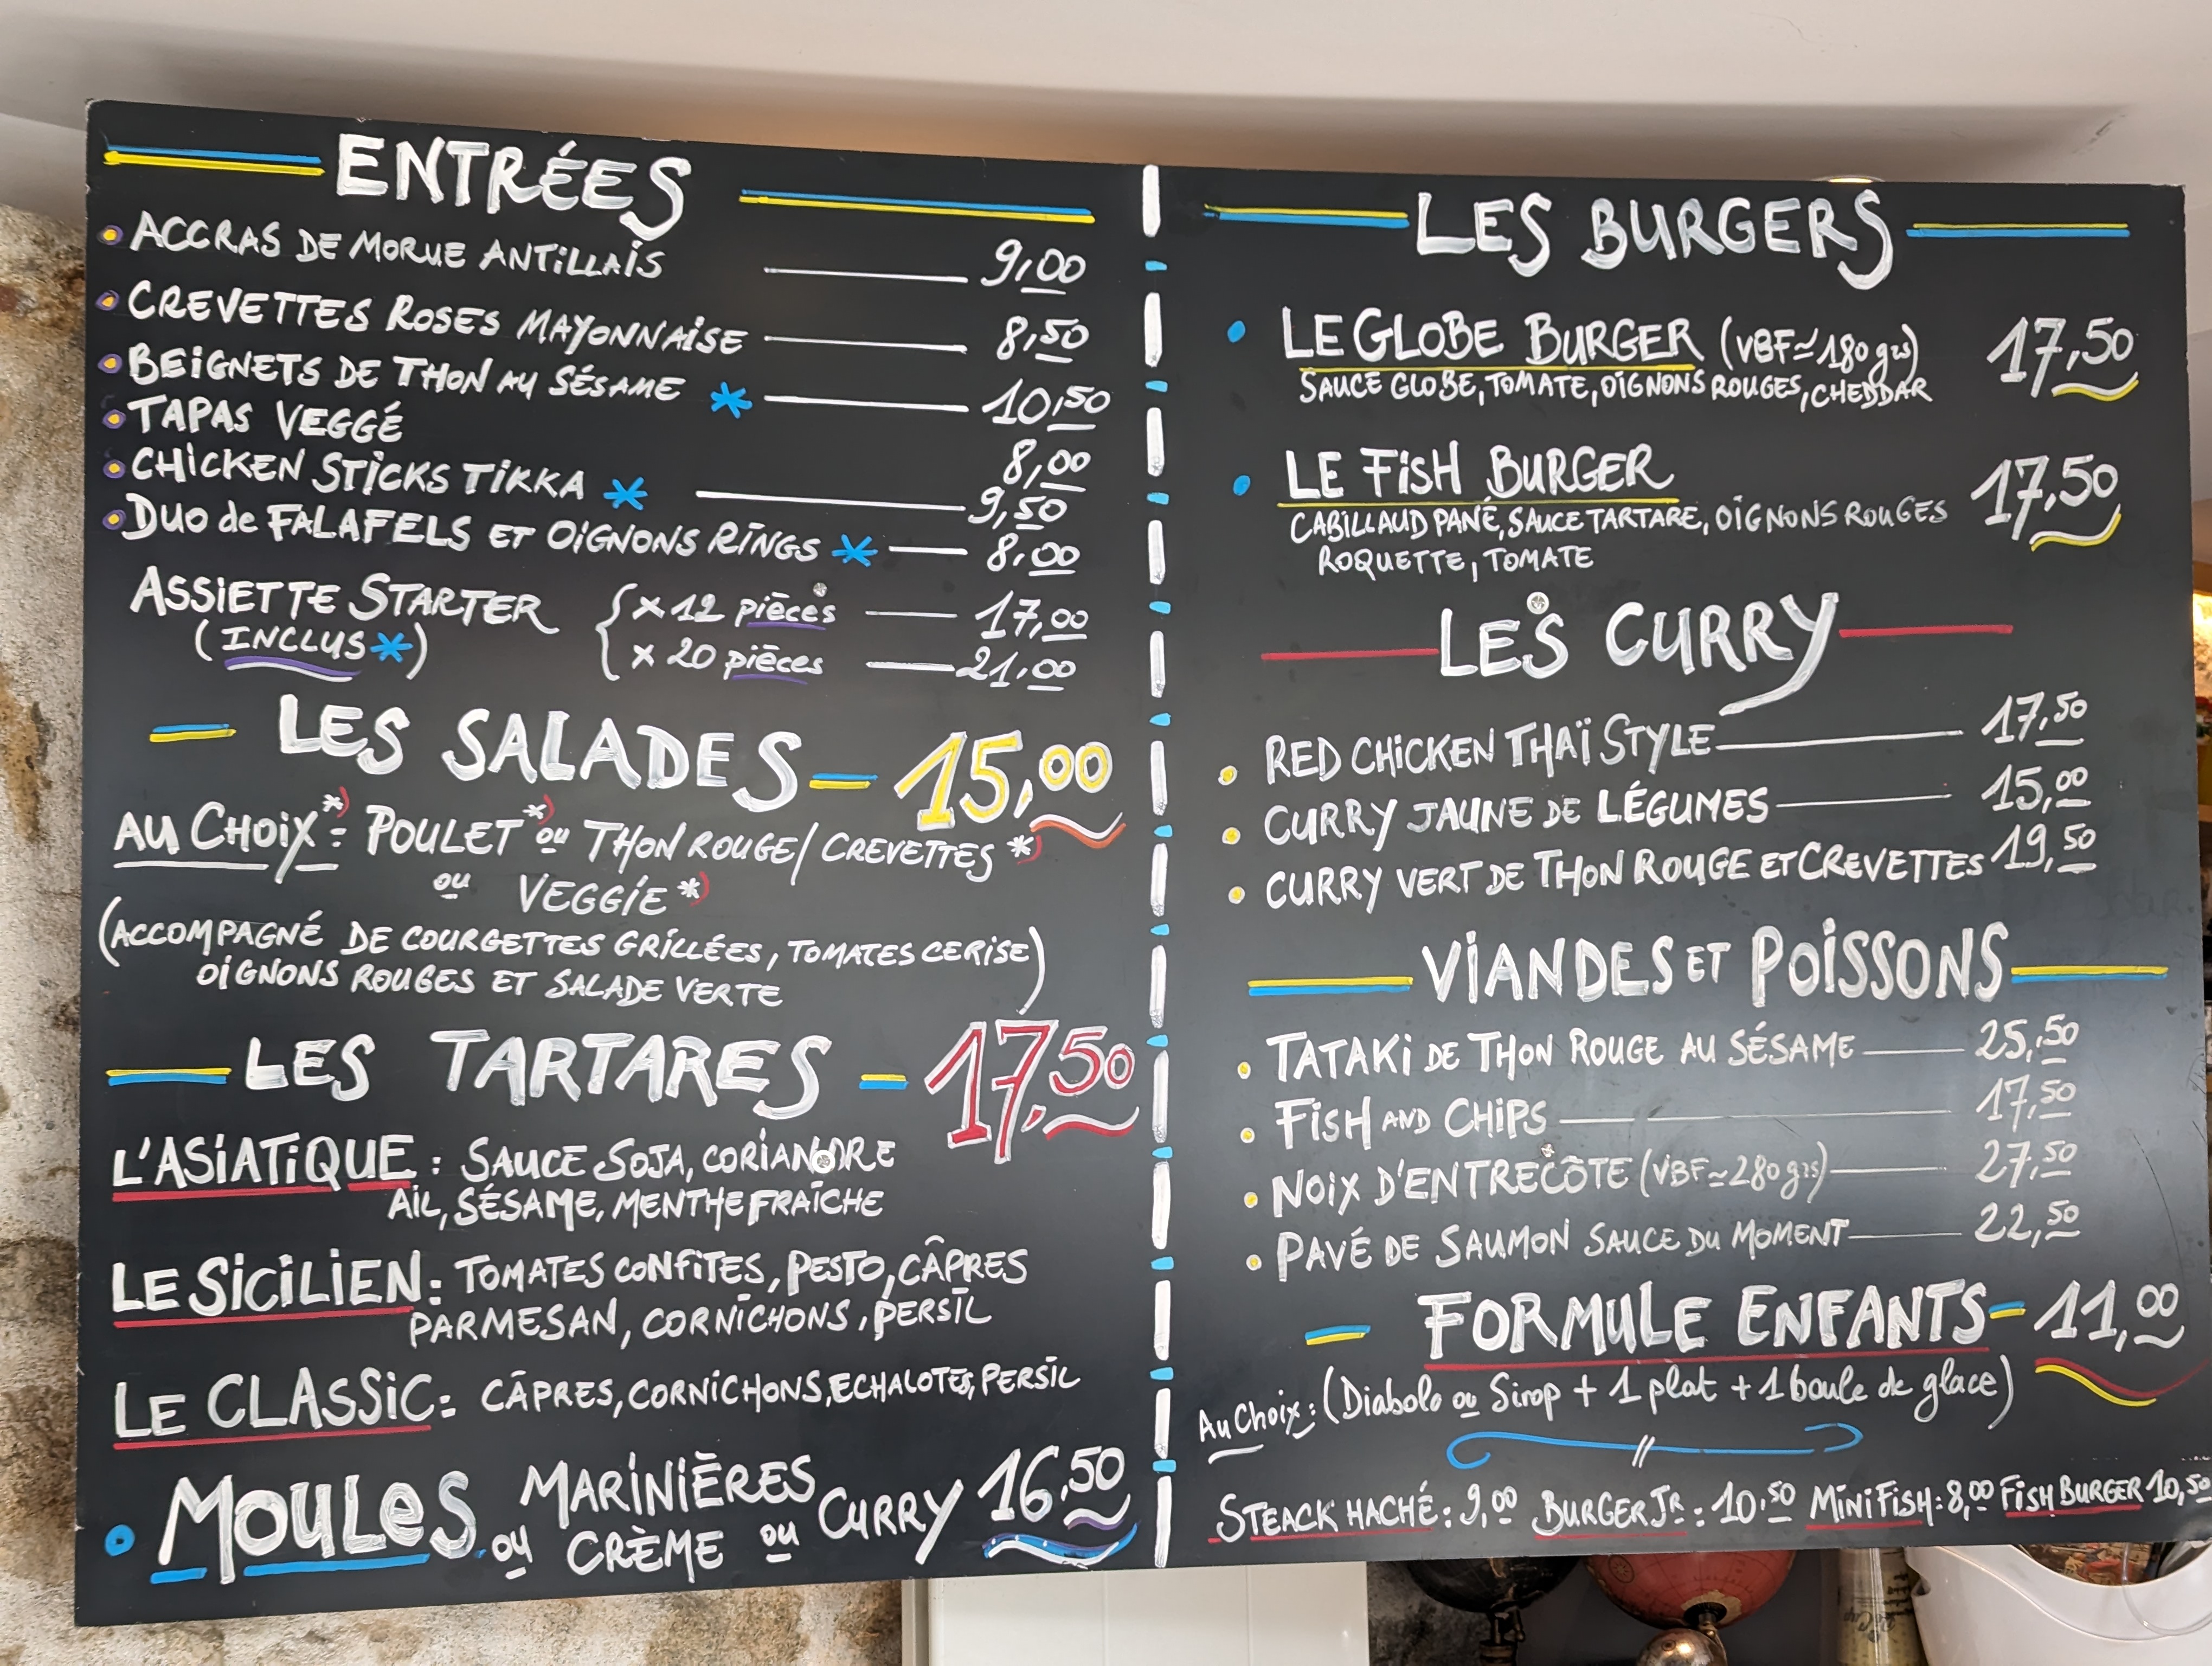 ENTRÉES
ACCRAS DE MORUE ANTILLAIS 9,00
CREVETTES ROSES MAYONNAISE 8,50
BEIGNETS DE THON AU SÉSAME * 10,50
TAPAS VEGGÉ 8,00
CHICKEN STICKS TIKKA * 9,50
DUO de FALAFELS ET OIGNONS RINGS * 8,00
ASSIETTE STARTER { x 12 pièces 17,00
(INCLUS *) x 20 pièces 21,00
LES SALADES 15,00
AU CHOIX* : POULET* ou THON ROUGE / CREVETTES *
ou VEGGIE *
(ACCOMPAGNÉ DE COURGETTES GRILLÉES, TOMATES CERISE
OIGNONS ROUGES ET SALADE VERTE)
LES TARTARES 17,50
L'ASIATIQUE : SAUCE SOJA, CORIANDRE
AIL, SÉSAME, MENTHE FRAÎCHE
LE SICILIEN : TOMATES CONFITES, PESTO, CÂPRES
PARMESAN, CORNICHONS, PERSIL
LE CLASSIC : CÂPRES, CORNICHONS, ECHALOTES, PERSIL
MOULES MARINIÈRES
ou CRÈME ou CURRY 16,50
LES BURGERS
LE GLOBE BURGER (VBF ≃ 180 grs) 17,50
SAUCE GLOBE, TOMATE, OIGNONS ROUGES, CHEDDAR
LE FISH BURGER 17,50
CABILLAUD PANÉ, SAUCE TARTARE, OIGNONS ROUGES
ROQUETTE, TOMATE
LES CURRY
RED CHICKEN THAÏ STYLE 17,50
CURRY JAUNE DE LÉGUMES 15,00
CURRY VERT DE THON ROUGE ET CREVETTES 19,50
VIANDES ET POISSONS
TATAKI DE THON ROUGE AU SÉSAME 25,50
FISH AND CHIPS 17,50
NOIX D'ENTRECÔTE (VBF ≃ 280 grs) 27,50
PAVÉ DE SAUMON SAUCE DU MOMENT 22,50
FORMULE ENFANTS 11,00
Au Choix : (Diabolo ou Sirop + 1 plat + 1 boule de glace)
STEACK HACHÉ : 9,00 BURGER Jr : 10,50 MINI FISH : 8,00 FISH BURGER 10,50